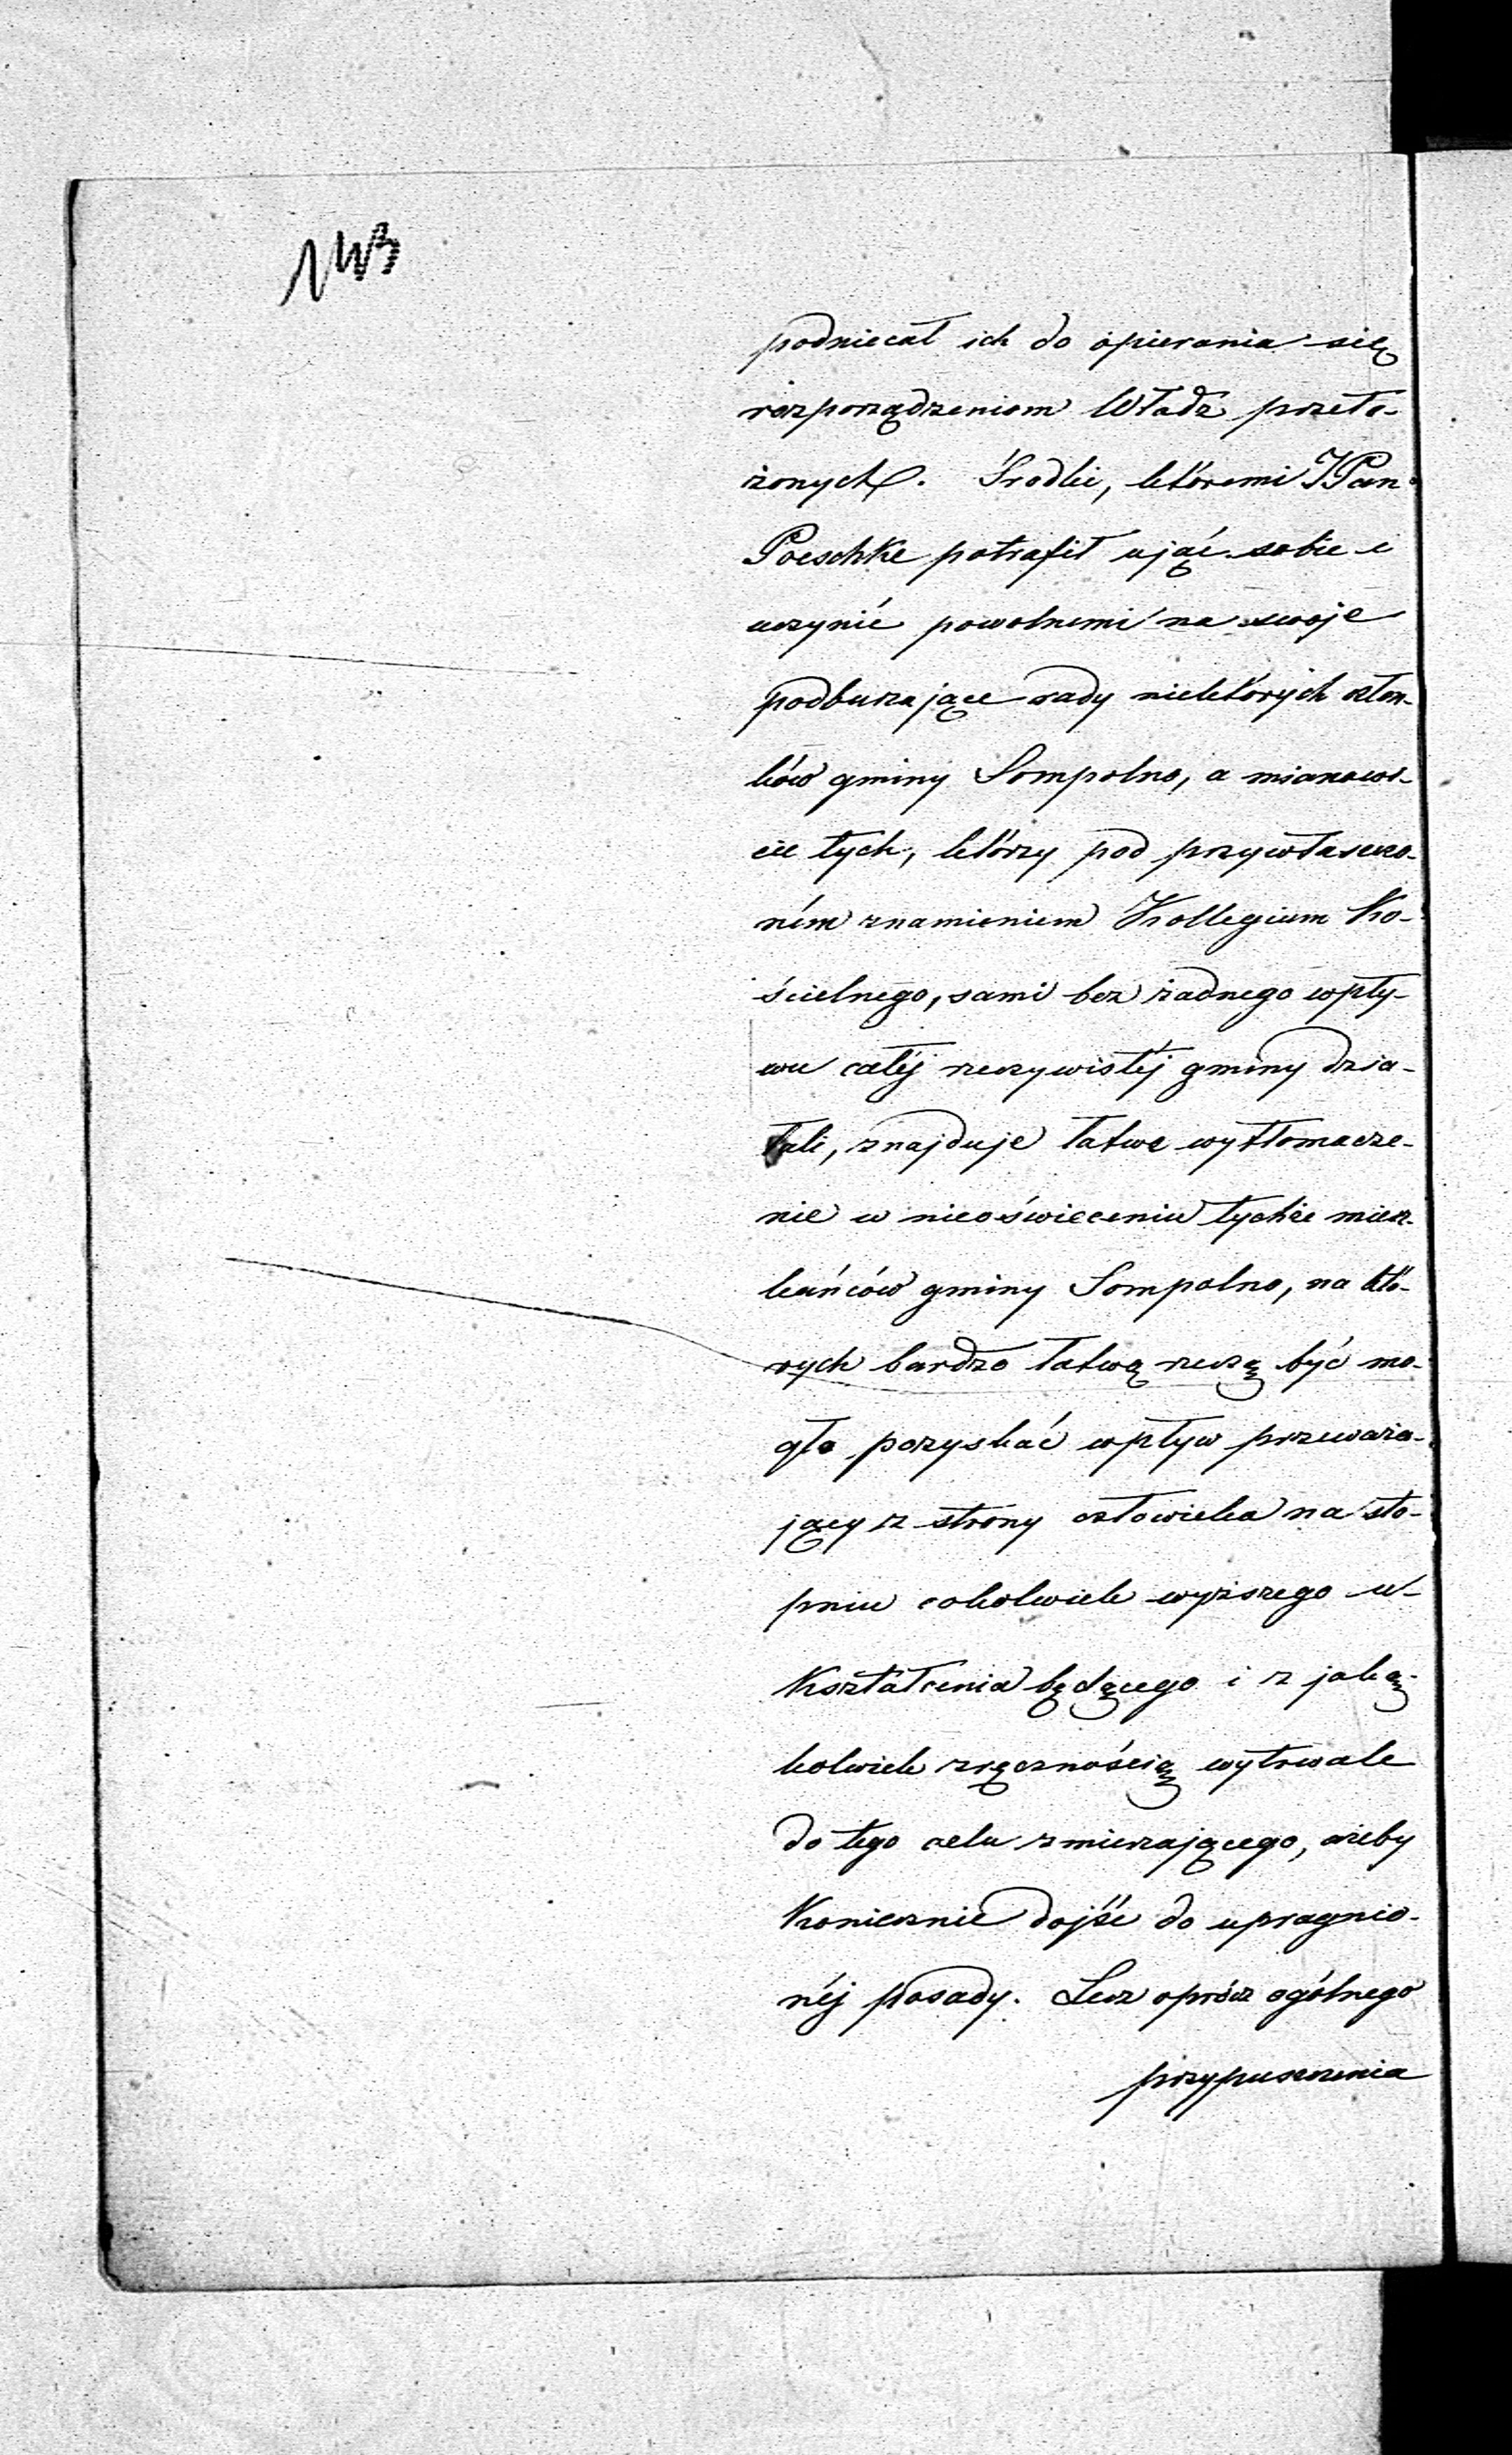 143
podniecał ich do opierania się
rozporządzeniom Władz przeło-
żonych. Środki, któremi JPan
Poeschke potrafił ująć sobie i
uczynić powolnemi na swoje
podburzające rady niektórych człon-
ków gminy Sompolno, a mianowi-
cie tych, którzy pod przywłaszczo-
ném znamieniem Kollegium Ko-
ścielnego, sami bez żadnego wpły-
wu całéj rzeczywistéj gminy dzia-
łali, znajduje łatwe wytłomacze-
nie w nieoświeceniu tychże miesz-
kańców gminy Sompolno, na któ-
rych bardzo łatwą rzeczą być mo-
gło pozyskać wpływ przeważa-
jący z strony człowieka na sto-
pniu cokolwiek wyższego u-
kształcenia będącego i z jaką-
kolwiek zręcznością wytrwale
do tego celu zmierzającego, ażeby
koniecznie dojść do upragnio-
néj posady. Lecz oprócz ogólnego
przypuszczenia